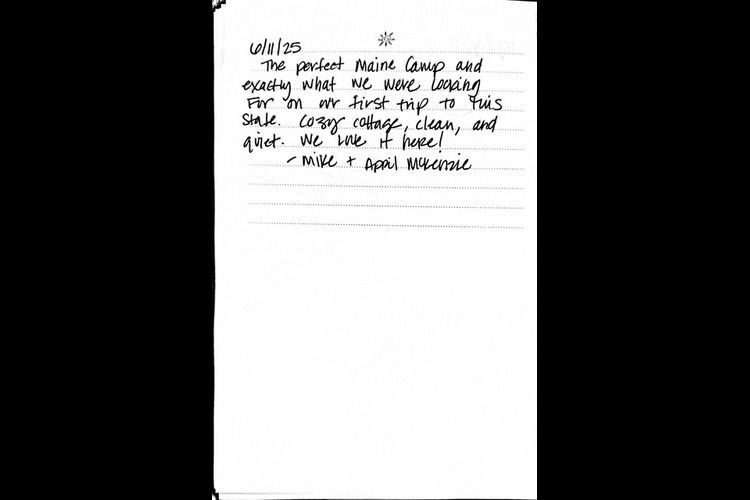 6/11/25
The perfect Maine Camp and
exactly what we were looking
For on our first trip to this
State. Cozy cottage, clean, and
quiet. We love it here!
- Mike + April McKenzie